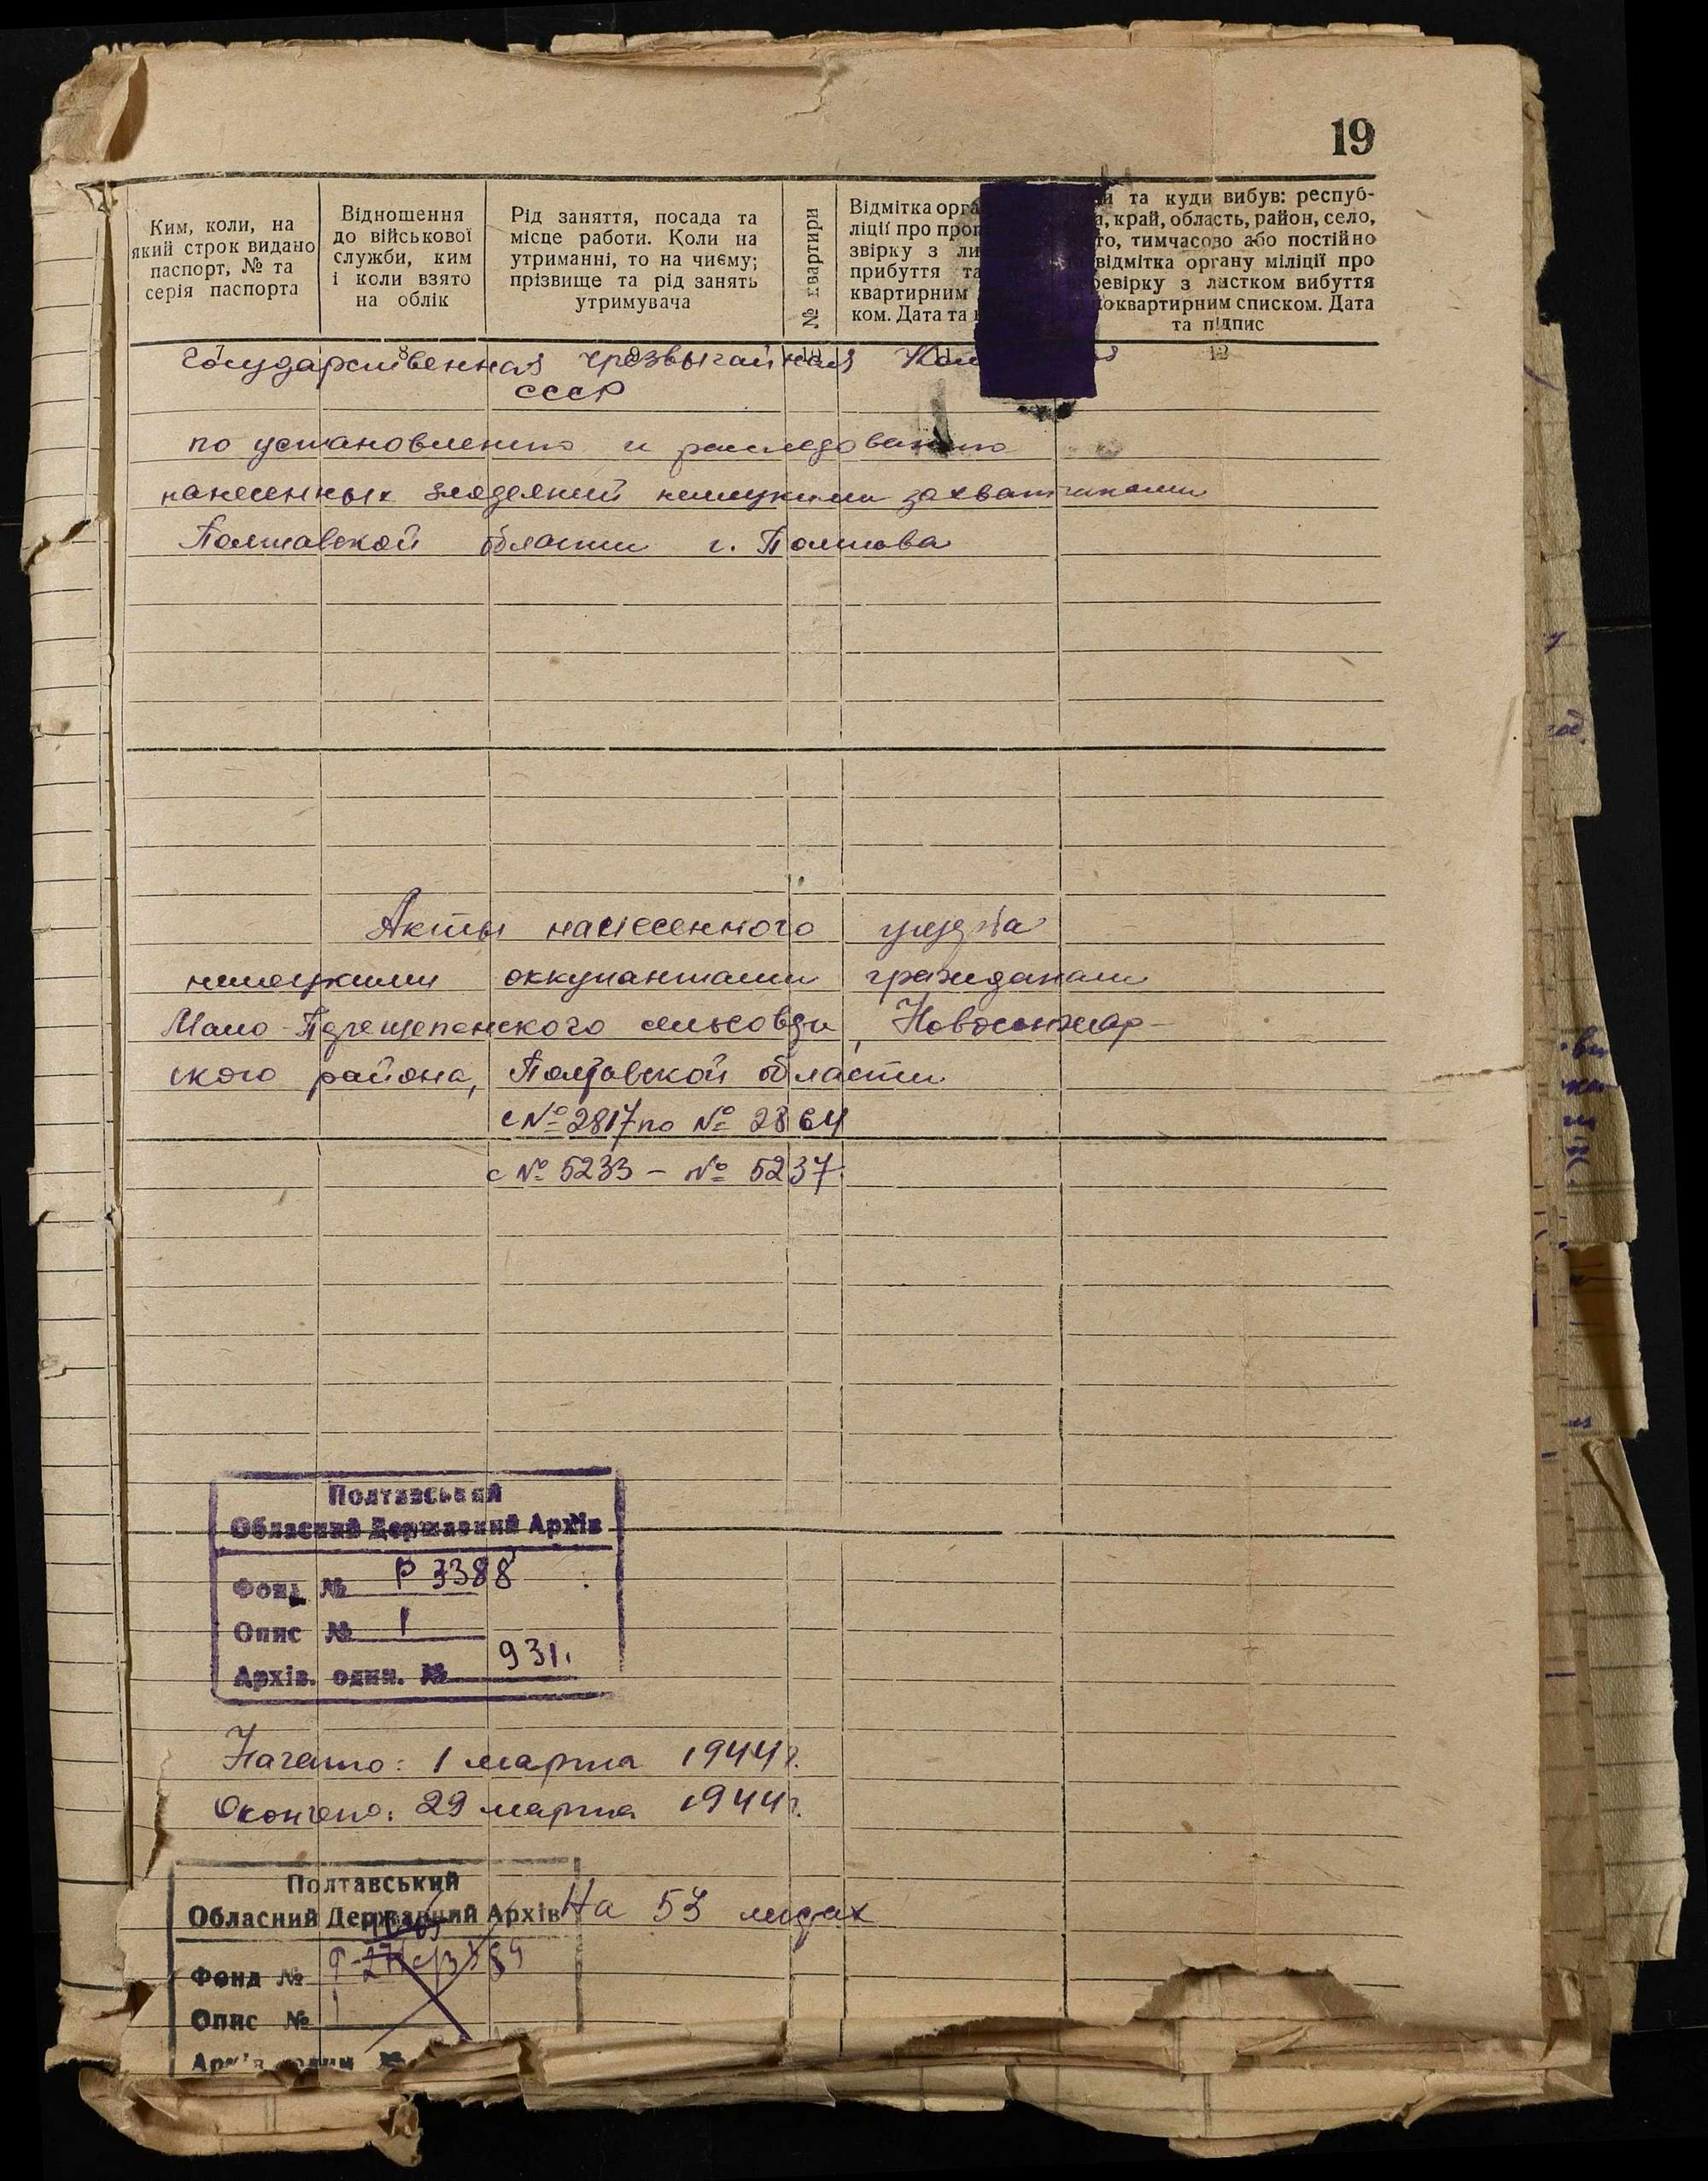 19
Ким, коли, на
який строк видано
паспорт, № та
серія паспорта
Відношення
до військової
служби, ким
і коли взято
на облік
Рід заняття, посада та
місце работи. Коли на
утриманні, то на чиєму;
прізвище та рід занять
утримувача
№ квартири
Відмітка орга
ліції про проп
звірку з ли
прибуття та
квартирним
ком. Дата та
и та куди вибув: респуб-
а, край, область, район, село,
то, тимчасово або постійно
відмітка органу міліції про
ревірку з листком вибуття
оквартирним списком. Дата
та підпис
7 8 9 10 11 12
Государственная чрезвычайная Ком
СССР
по установлению и расследованию
нанесенных злодеяний немецкими захватчиками
Полтавской области г. Полтава
Акты нанесенного ущерба
немецкими оккупантами гражданам
Мало-Перещепенского сельсовета, Новосанжар-
ского района, Полтавской области
с № 2817 по № 2864
с № 5233 – № 5237.
Полтавський
Обласний Державний Архів
Фонд № Р 3388
Опис № 1
Архів. один. № 931.
Начато: 1 марта 1944 г.
Окончено: 29 марта 1944 г.
На 53 листах
Полтавський
Обласний Державний Архів
Фонд №
Опис № 1
Архів. один. №